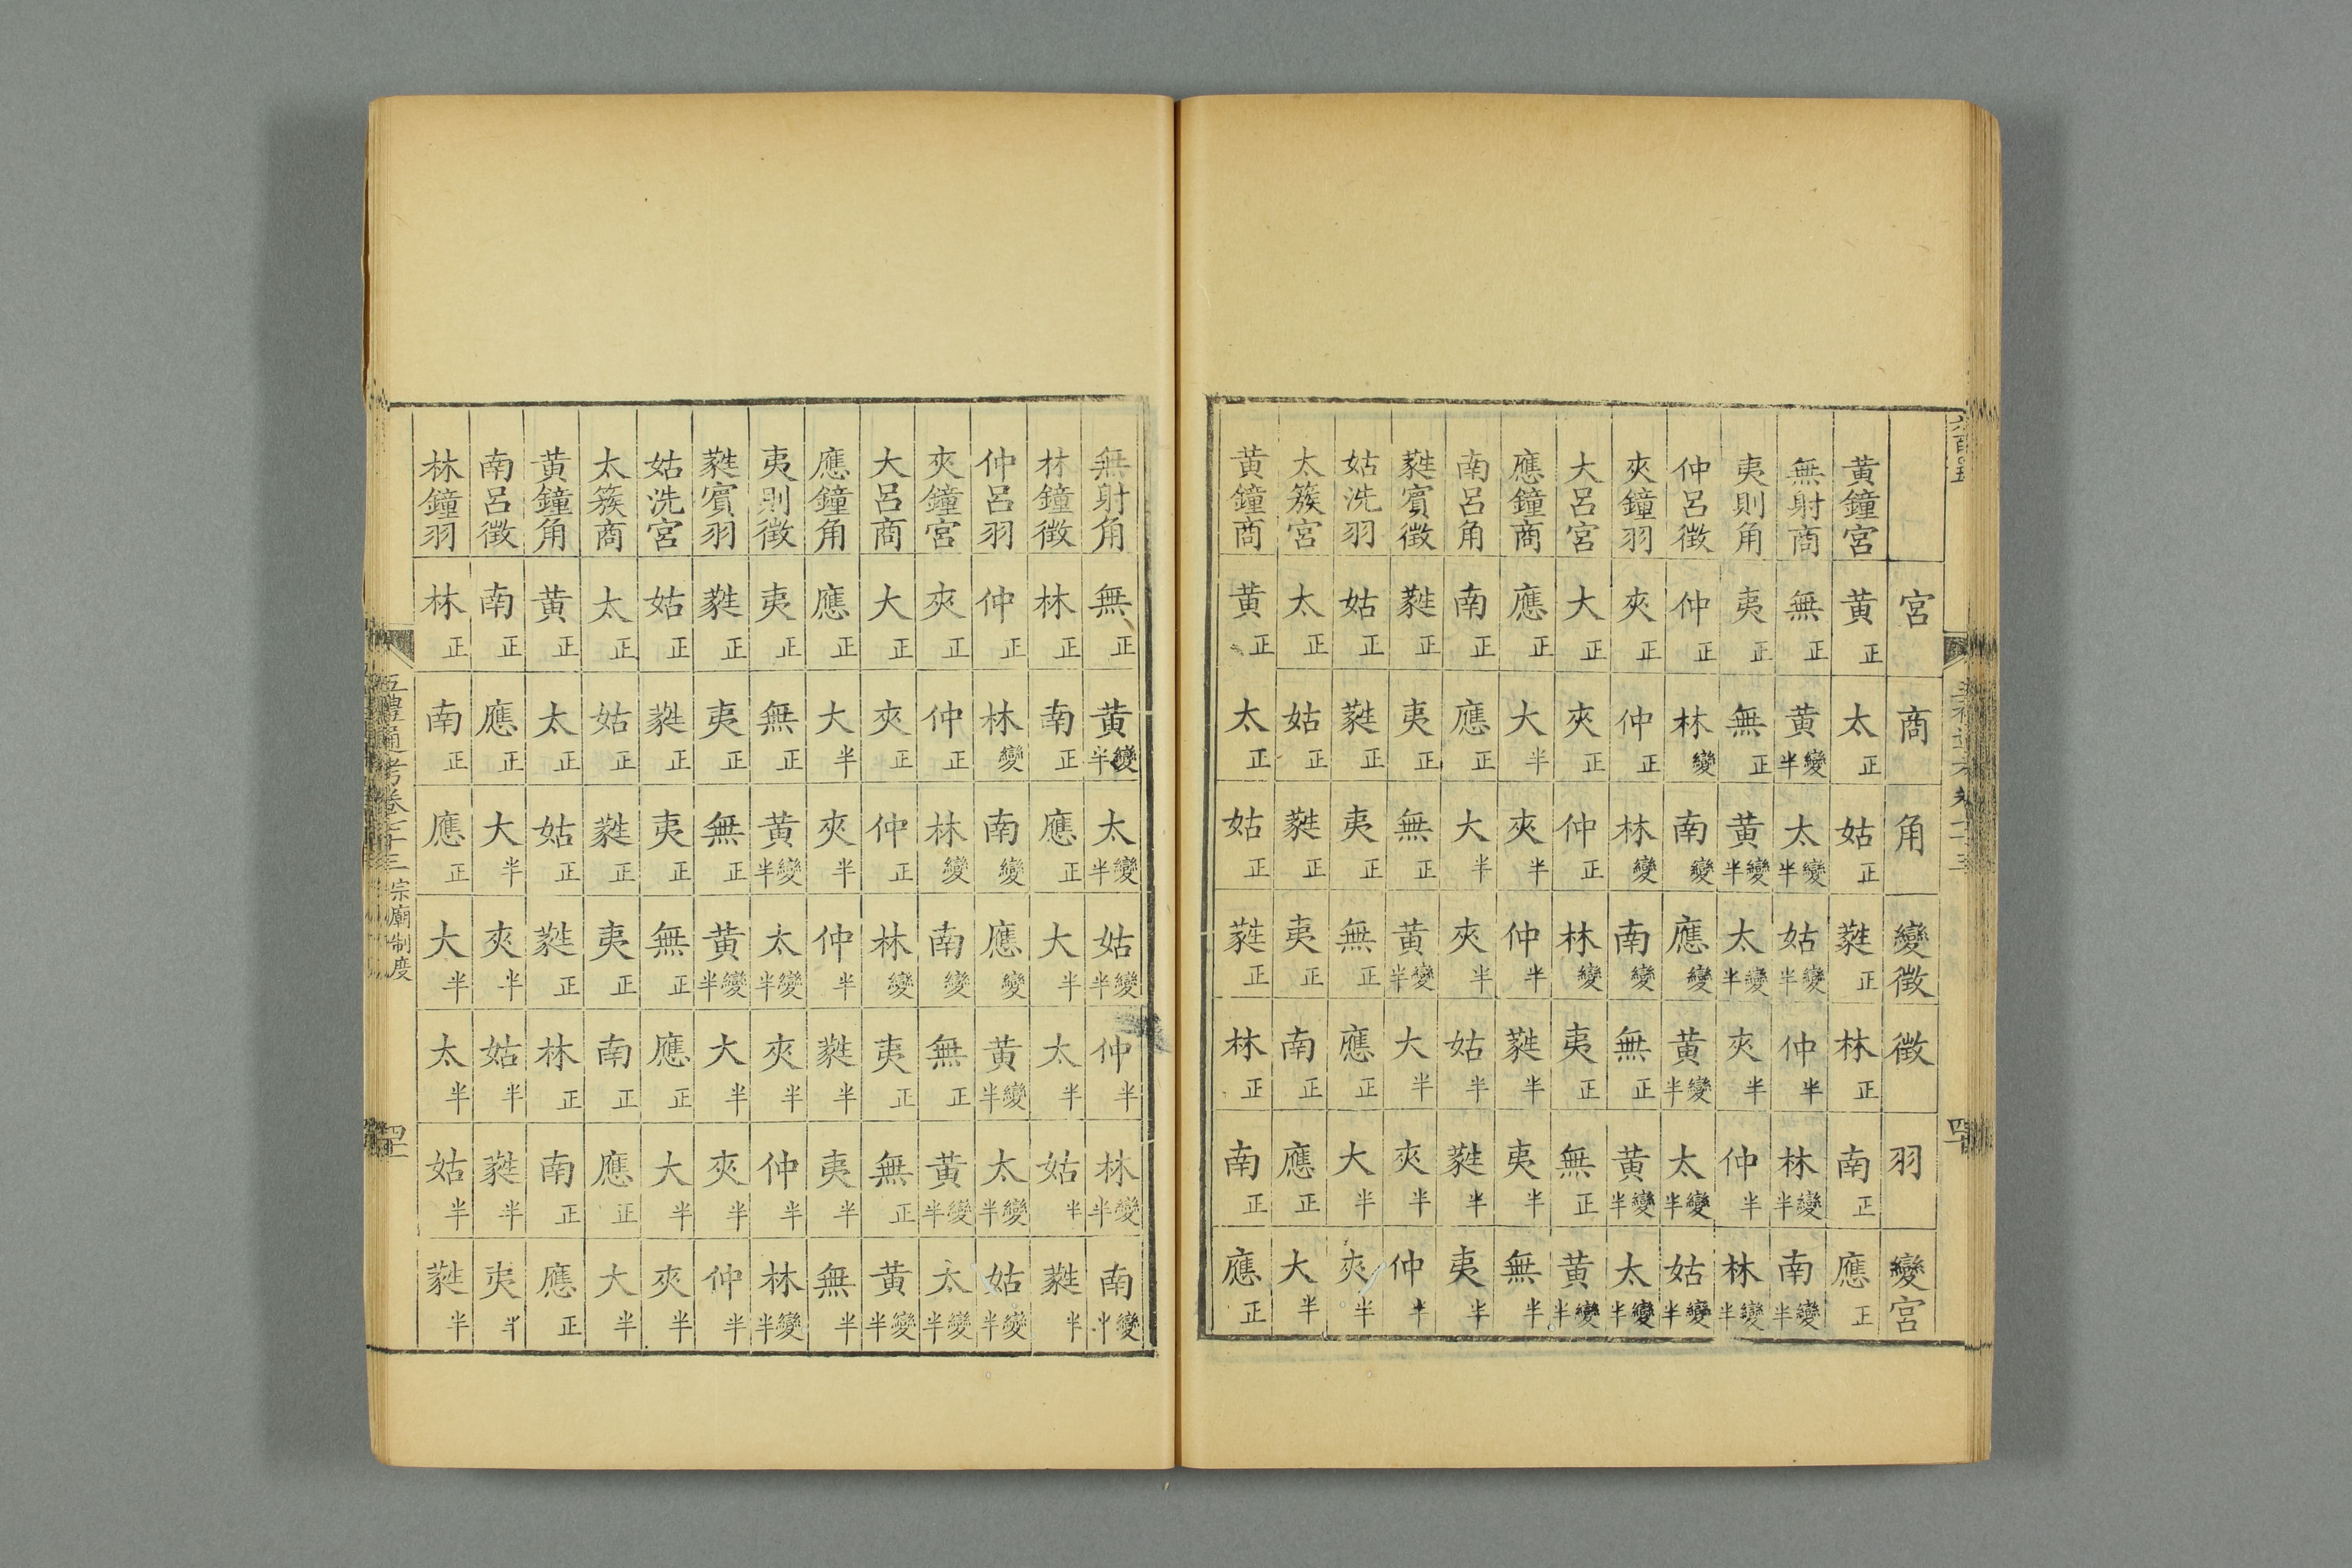 宮 商 角 變徵 徵 羽 變宮
黄鐘宮 黄正 太正 姑正 蕤正 林正 南正 應正
無射商 無正 黄變半 太變半 姑變半 仲半 林變半 南變半
夷則角 夷正 無正 黄變半 太變半 夾半 仲半 林變半
仲呂徵 仲正 林變 南變 應變 黄變半 太變半 姑變半
夾鐘羽 夾正 仲正 林變 南變 無正 黄變半 太變半
大呂宮 大正 夾正 仲正 林變 夷正 無正 黄變半
應鐘商 應正 大半 夾半 仲半 蕤半 夷半 無半
南呂角 南正 應正 大半 夾半 姑半 蕤半 夷半
蕤賓徵 蕤正 夷正 無正 黄變半 大半 夾半 仲半
姑洗羽 姑正 蕤正 夷正 無正 應正 大半 夾半
太簇宮 太正 姑正 蕤正 夷正 南正 應正 大半
黄鐘商 黄正 太正 姑正 蕤正 林正 南正 應正
無射角 無正 黄變半 太變半 姑變半 仲半 林變半 南變半
林鐘徵 林正 南正 應正 大半 太半 姑半 蕤半
仲呂羽 仲正 林變 南變 應變 黄變半 太變半 姑變半
夾鐘宮 夾正 仲正 林變 南變 無正 黄變半 太變半
大呂商 大正 夾正 仲正 林變 夷正 無正 黄變半
應鐘角 應正 大半 夾半 仲半 蕤半 夷半 無半
夷則徵 夷正 無正 黄變半 太變半 夾半 仲半 林變半
蕤賓羽 蕤正 夷正 無正 黄變半 大半 夾半 仲半
姑洗宮 姑正 蕤正 夷正 無正 應正 大半 夾半
太簇商 太正 姑正 蕤正 夷正 南正 應正 大半
黄鐘角 黄正 太正 姑正 蕤正 林正 南正 應正
南呂徵 南正 應正 大半 夾半 姑半 蕤半 夷半
林鐘羽 林正 南正 應正 大半 太半 姑半 蕤半
五禮通考卷七十三 宗廟制度